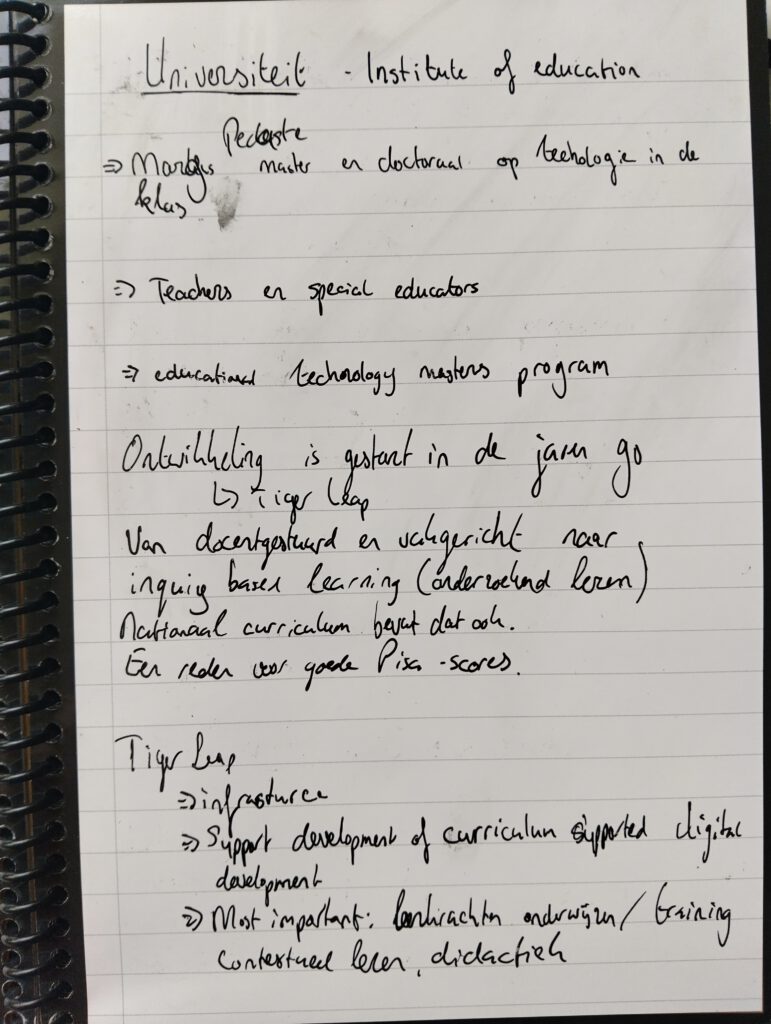 Universiteit - Institute of education
Pedaste
⇒ Margus master en doctoraal op techologie in de
klas
⇒ Teachers en special educators
⇒ educational technology masters program
Ontwikkeling is gestart in de jaren 90
↳ Tiger Leap
Van docentgestuurd en vakgericht naar
inquiry based learning (onderzoekend leren)
Nationaal curriculum bevat dat ook.
Een reden voor goede Pisa-scores.
Tiger Leap
⇒ infrasturce
⇒ Support development of curriculum supported digital
development
⇒ Most important: leerkrachten onderwijzen / training
Contextueel leren, didactiek